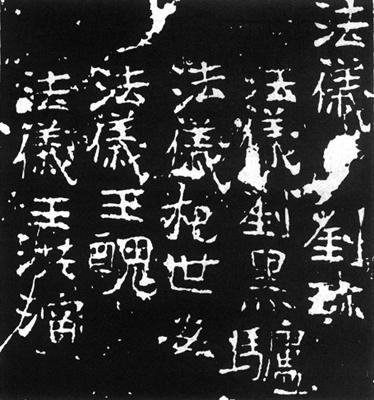 法儀劉珎
法儀劉黑驢
法儀世
法儀王醜
法儀王洪